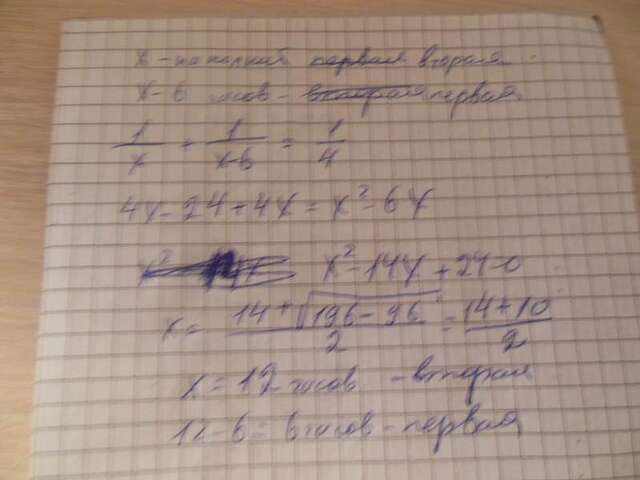 x - наполнит первая вторая
x - 6 часов - вторая первая
1/x + 1/x-6 = 1/4
4x - 24 + 4x = x² - 6x
x² - 14x + 24=0
x = 14+√196-96/2 = 14+10/2
x = 12 часов - вторая
12-6= 6 часов - первая